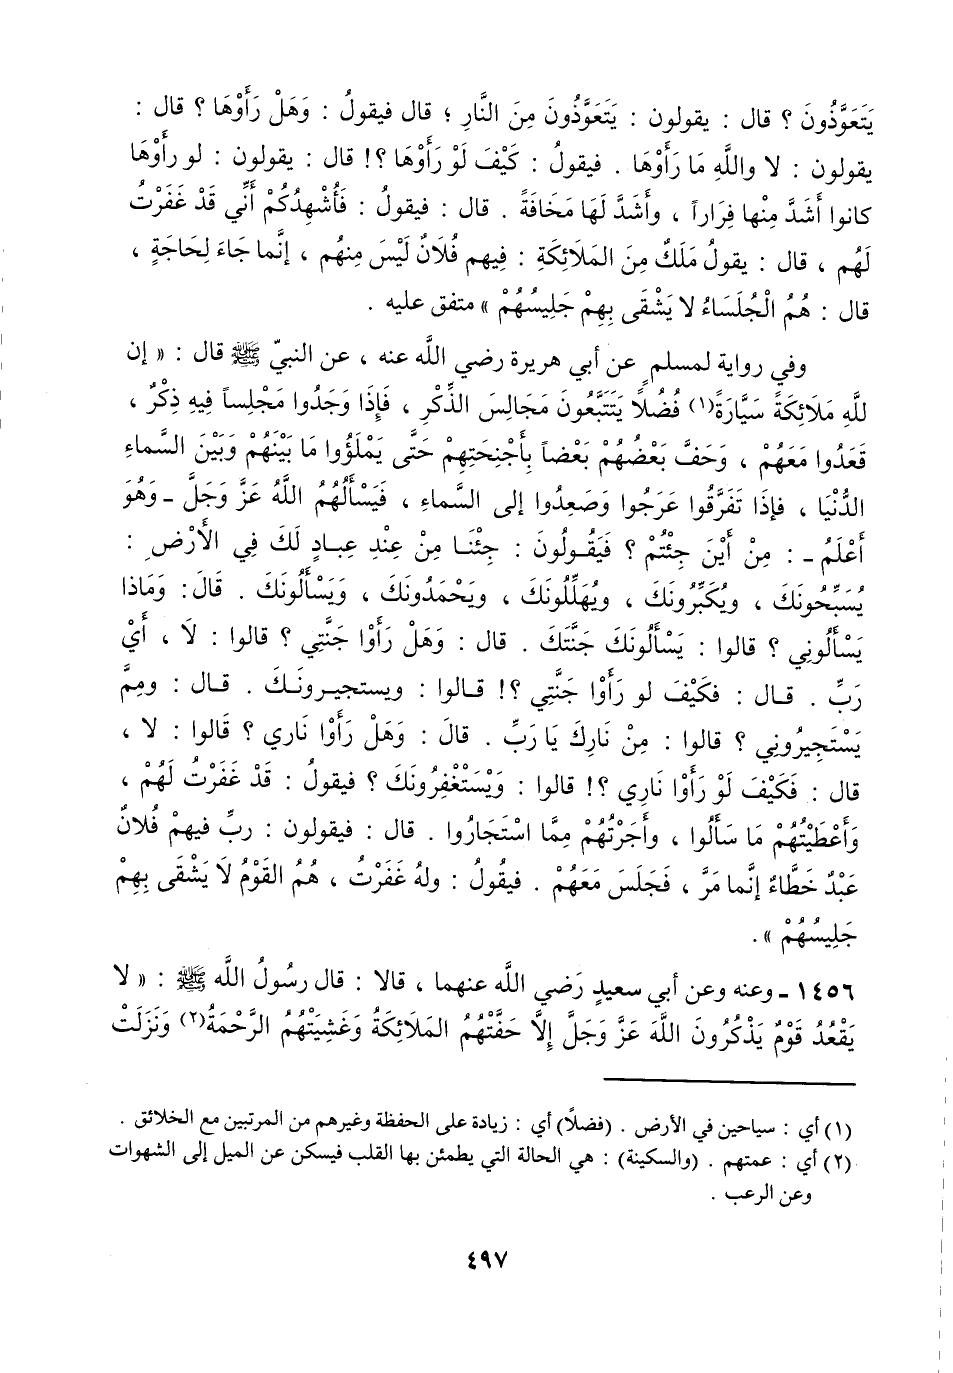 يَتَعَوَّذُونَ ؟ قال : يقولون : يَتَعَوَّذُونَ مِنَ النَّارِ ؛ قال فيقولُ : وَهَلْ رَأَوْهَا ؟ قال :
يقولون : لا واللَّهِ مَا رَأَوْهَا . فيقولُ : كَيْفَ لَوْ رَأَوْهَا ؟! قال : يقولون : لو رأوْهَا
كانوا أَشَدَّ مِنْها فِرَاراً ، وأَشَدَّ لَهَا مَخَافَةً . قال : فيقولُ : فَأُشْهِدُكُمْ أَنِّي قَدْ غَفَرْتُ
لَهُم ، قال : يقولُ مَلَكٌ مِنَ المَلَائِكَةِ : فِيهم فُلَانٌ لَيْسَ مِنهُم ، إنَّما جَاءَ لِحَاجَةٍ ،
قال : هُمُ الْجُلَسَاءُ لا يَشْقَى بِهِمْ جَلِيسُهُمْ » متفق عليه .
وفي رواية لمسلمٍ عن أبي هريرة رضي اللَّه عنه ، عن النبيّ ﷺ قال : « إن
للَّهِ مَلَائِكَةً سَيَّارَةً(١) فُضُلًا يَتَتَبَّعُونَ مَجَالِسَ الذِّكْرِ ، فَإِذَا وَجَدُوا مَجْلِساً فِيهِ ذِكْرٌ ،
قَعَدُوا مَعَهُمْ ، وَحَفَّ بَعْضُهُمْ بَعْضاً بِأَجْنِحَتِهِمْ حَتَّى يَمْلَؤُوا مَا بَيْنَهُمْ وَبَيْنَ السَّماءِ
الدُّنْيَا ، فإذَا تَفَرَّقُوا عَرَجُوا وَصَعِدُوا إلى السَّماءِ ، فَيَسْأَلُهُمُ اللَّهُ عَزَّ وَجَلَّ ـ وَهُوَ
أَعْلَمُ ـ : مِنْ أَيْنَ جِئْتُمْ ؟ فَيَقُولُونَ : جِئْنَا مِنْ عِنْدِ عِبادٍ لَكَ فِي الأَرْضِ :
يُسَبِّحُونَكَ ، ويُكَبِّرُونَكَ ، ويُهَلِّلُونَكَ ، ويَحْمَدُونَكَ ، وَيَسْأَلُونَكَ . قَالَ : وَمَاذا
يَسْأَلُونِي ؟ قالوا : يَسْأَلُونَكَ جَنَّتَكَ . قال : وَهَلْ رَأَوْا جَنَّتِي ؟ قالوا : لَا ، أَيْ
رَبِّ . قال : فكَيْفَ لو رَأَوْا جَنَّتِي ؟! قالوا : ويستجيرونَكَ . قال : ومِمَّ
يَسْتَجِيرُونِي ؟ قالوا : مِنْ نَارِكَ يَا رَبِّ . قالَ : وَهَلْ رَأَوْا نَارِي ؟ قَالوا : لا ،
قال : فَكَيْفَ لَوْ رَأَوْا نَارِي ؟! قالوا : وَيَسْتَغْفِرُونَكَ ؟ فيقولُ : قَدْ غَفَرْتُ لَهُمْ ،
وَأَعْطَيْتُهُمْ مَا سَأَلُوا ، وأَجَرْتُهُمْ مِمَّا اسْتَجَارُوا . قال : فيقولون : ربِّ فيهمْ فُلانٌ
عَبْدٌ خَطَّاءٌ إنَّما مَرَّ ، فَجَلَسَ مَعَهُمْ . فيقُولُ : ولهُ غَفَرْتُ ، هُمُ القَوْمُ لَا يَشْقَى بِهِمْ
جَلِيسُهُمْ » .
١٤٥٦ ـ وعنه وعن أبي سعيدٍ رَضي اللَّه عنهما ، قالا : قال رسُولُ اللَّه ﷺ : « لا
يَقْعُدُ قَوْمٌ يَذْكُرُونَ اللَّهَ عَزَّ وَجَلَّ إلَّا حَفَّتْهُمُ المَلَائِكَةُ وَغَشِيَتْهُمُ الرَّحْمَةُ(٢) وَنَزَلَتْ
(١) أي : سياحين في الأرض . (فضلًا) أي : زيادة على الحفظة وغيرهم من المرتبين مع الخلائق .
(٢) أي : عمتهم . (والسكينة) : هي الحالة التي يطمئن بها القلب فيسكن عن الميل إلى الشهوات
وعن الرعب .
٤٩٧